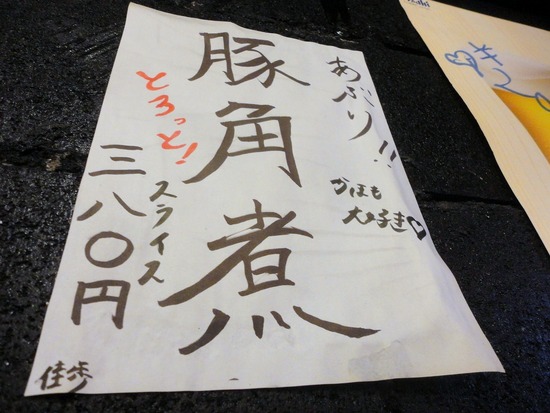 あぶり!!
かほも
大好き♡
豚角煮
とろっと!
スライス
三八〇円
佳歩